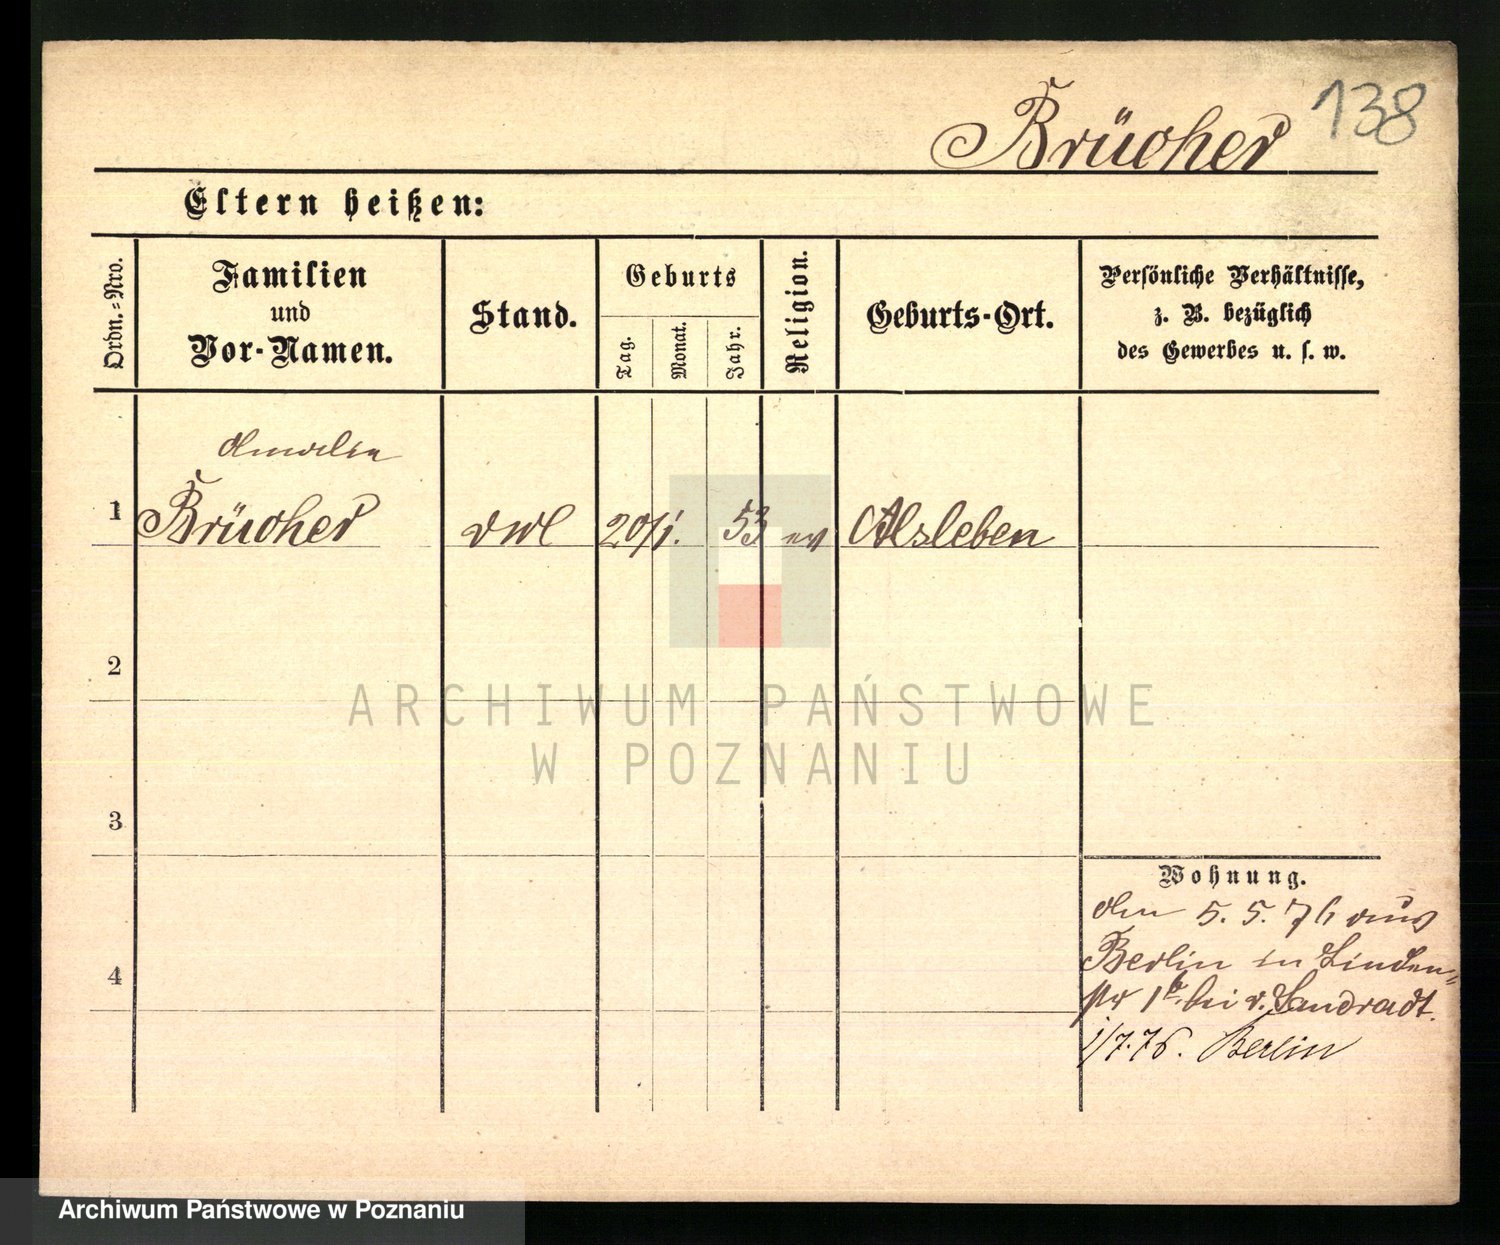 138
Brücher
Eltern heißen:
Ordn.-Nro.
Familien
und
Vor-Namen.
Stand.
Geburts
Tag.
Monat.
Jahr.
Religion.
Geburts-Ort.
Persönliche Verhältnisse,
z. B. bezüglich
des Gewerbes u. s. w.
Amalie
1 Brücher 20/1. 53 ev Alsleben
2
3
4
Wohnung.
den 5. 5. 76 aus
Berlin in Linden-
str 1b. bei v. Sandradt.
1/7.76. Berlin
ARCHIWUM PAŃSTWOWE
W POZNANIU
Archiwum Państwowe w Poznaniu